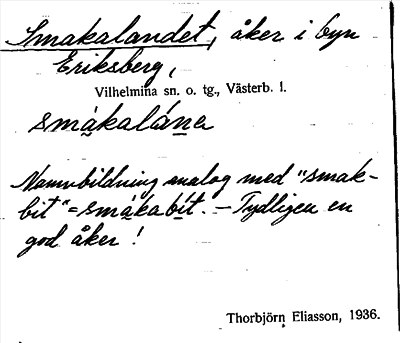 Smakalandet, åker i byn
Eriksberg,
Vilhelmina sn. o. tg., Västerb. l.
smàkaláne
Namnbildning analog med "smak-
bit" = smákabít. — Tydligen en
god åker!
Thorbjörn Eliasson, 1936.